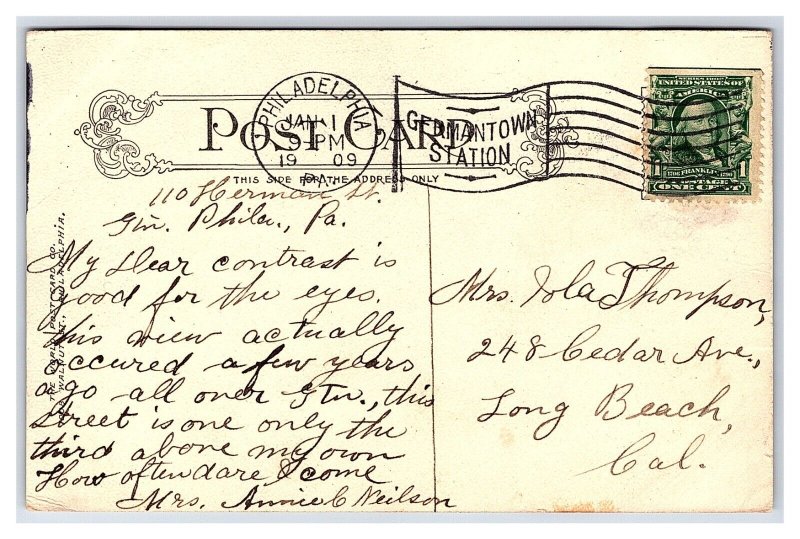 POST CARD
THIS SIDE FOR THE ADDRESS ONLY
PHILADELPHIA
JAN 1
9 PM
1909
PA.
GERMANTOWN
STATION
SERIES 1902
UNITED STATES OF
AMERICA
1 1706 FRANKLIN 1790 1
POSTAGE
ONE CENT
THE WORLD POST CARD CO.
WALNUT ST., PHILADELPHIA.
110 Herman St.
Gtn. Phila., Pa.
My dear contrast is
good for the eyes.
This view actually
occured a few years
ago all over Gtn., this
street is one only the
third above my own
How often dare I come
Mrs. Annie C Neilson
Mrs. Iola Thompson,
248 Cedar Ave.,
Long Beach,
Cal.